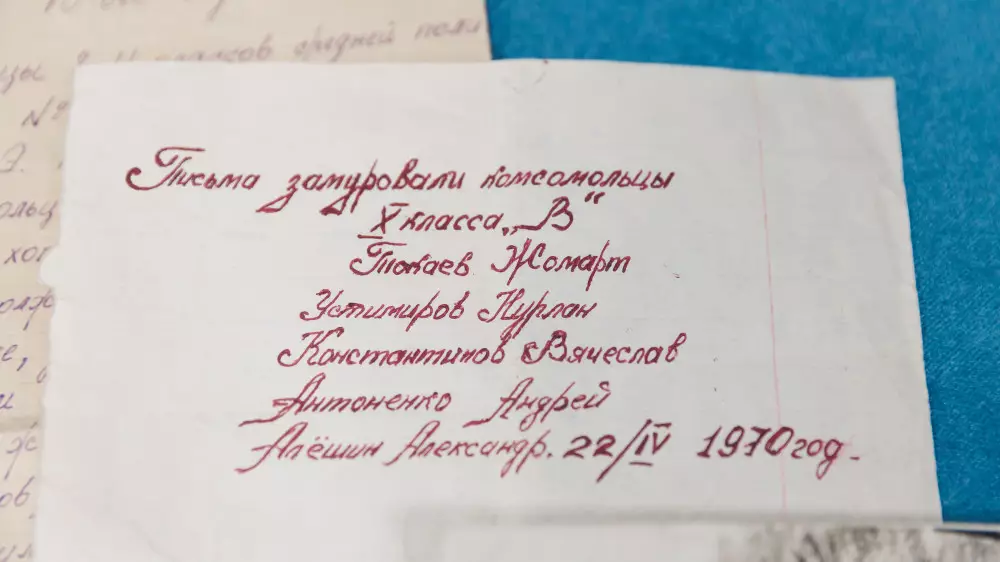 классов средней
№
Э.
Письма замуровали комсомольцы
X класса „В“
Токаев Жомарт
Устимиров Нурлан
Константинов Вячеслав
Антоненко Андрей
Алёшин Александр. 22/IV 1970 год.